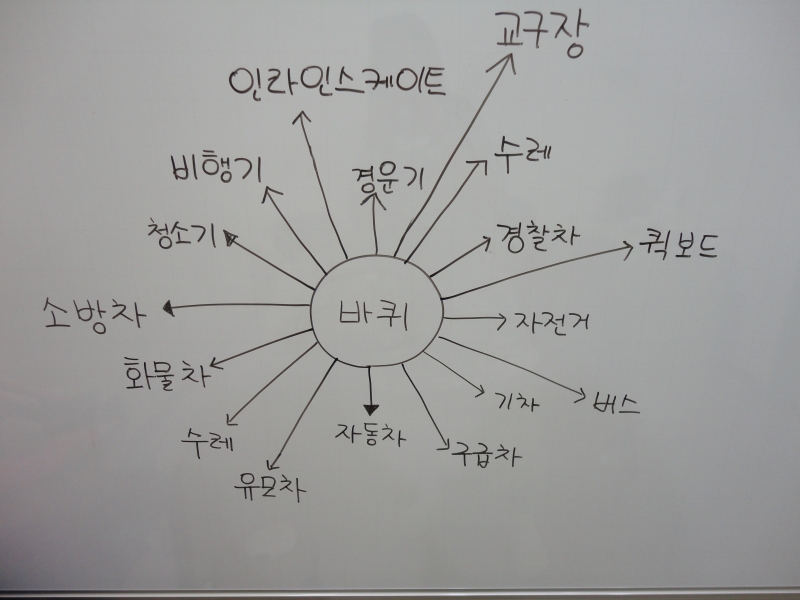 교구장
인라인스케이트
비행기
경운기
수레
청소기
경찰차
퀵보드
소방차
바퀴
자전거
화물차
기차
버스
수레
자동차
구급차
유모차